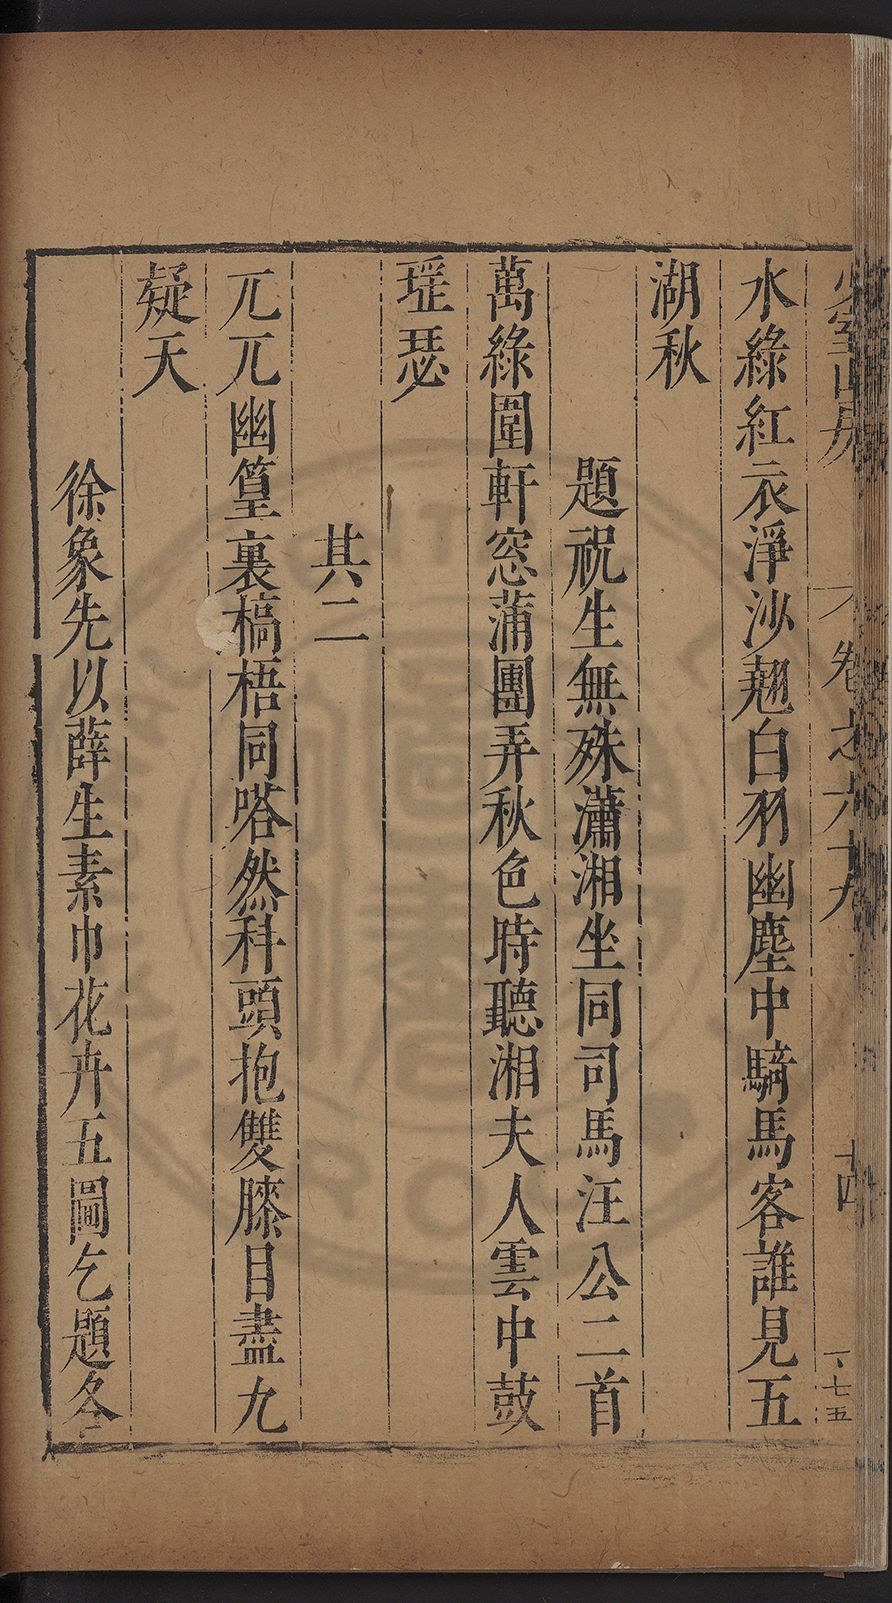 少室山房
卷之六十九
十四
一、七五
水綠紅衣淨沙翹白羽幽塵中騎馬客誰見五
湖秋
題祝生無殊瀟湘坐同司馬汪公二首
萬綠圍軒窓蒲團弄秋色時聽湘夫人雲中鼓
瑶瑟
其二
兀兀幽篁裏槁梧同嗒然科頭抱雙膝目盡九
疑天
徐象先以薛生素巾花卉五圖乞題各